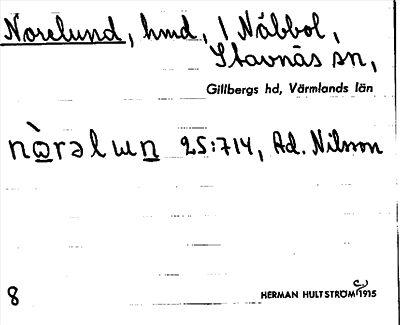 Norelund, hmd, 1 Näbbol,
Stavnäs sn,
Gillbergs hd, Värmlands län
nὼ̱rəlɯn̲ 25:714, Ad. Nilsson
8
HERMAN HULTSTRÖM 1915